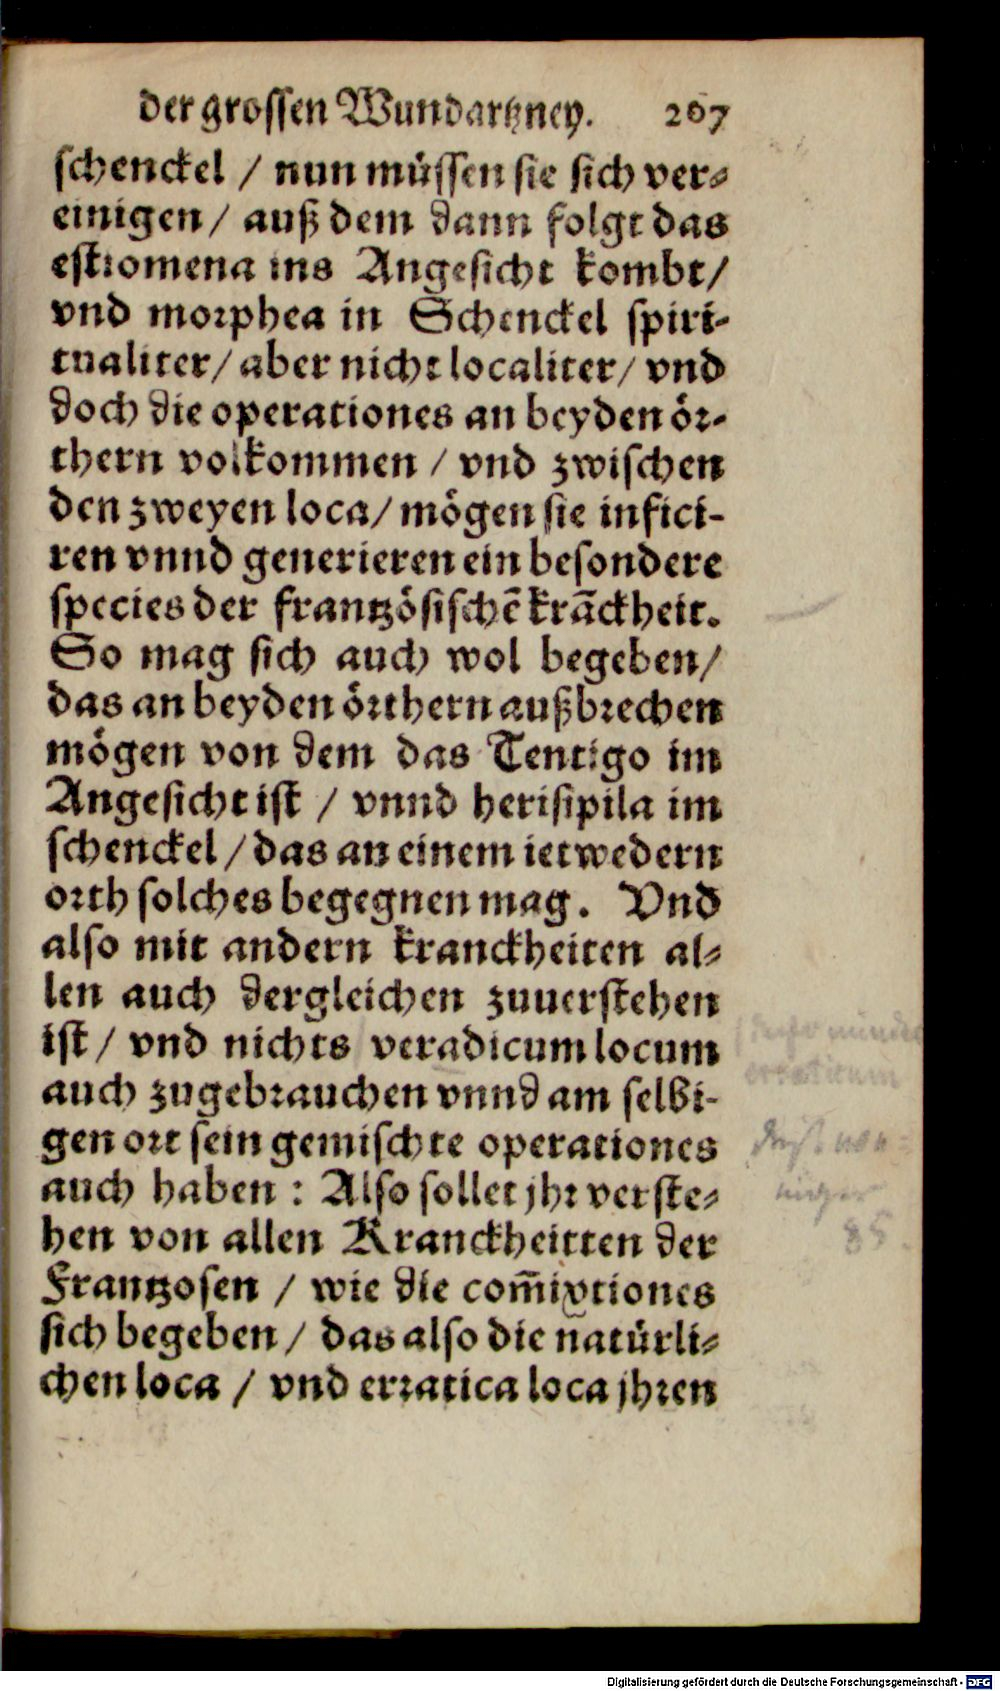 der grossen Wundartzney. 207
schenckel / nun müssen sie sich ver-
einigen / auß dem dann folgt das
estiomena ins Angesicht kombt /
vnd morphea in Schenckel spiri-
tualiter / aber nicht localiter / vnd
doch die operationes an beyden ör-
thern volkommen / vnd zwischen
den zweyen loca / mögen sie infici-
ren vnnd generieren ein besondere
species der frantzösischē krāckheit.
So mag sich auch wol begeben /
das an beyden örthern außbrechen
mögen von dem das Tentigo im
Angesicht ist / vnnd herisipila im
schenckel / das an einem ietwedern
orth solches begegnen mag. Vnd
also mit andern kranckheiten al-
len auch dergleichen zuuerstehen
ist / vnd nichts veradicum locum
auch zugebrauchen vnnd am selbi-
gen ort sein gemischte operationes
auch haben : Also sollet jhr verste-
hen von allen Kranckheitten der
Frantzosen / wie die com̄ixtiones
sich begeben / das also die natürli-
chen loca / vnd erratica loca jhren
erraticum
85.
Digitalisierung gefördert durch die Deutsche Forschungsgemeinschaft - DFG